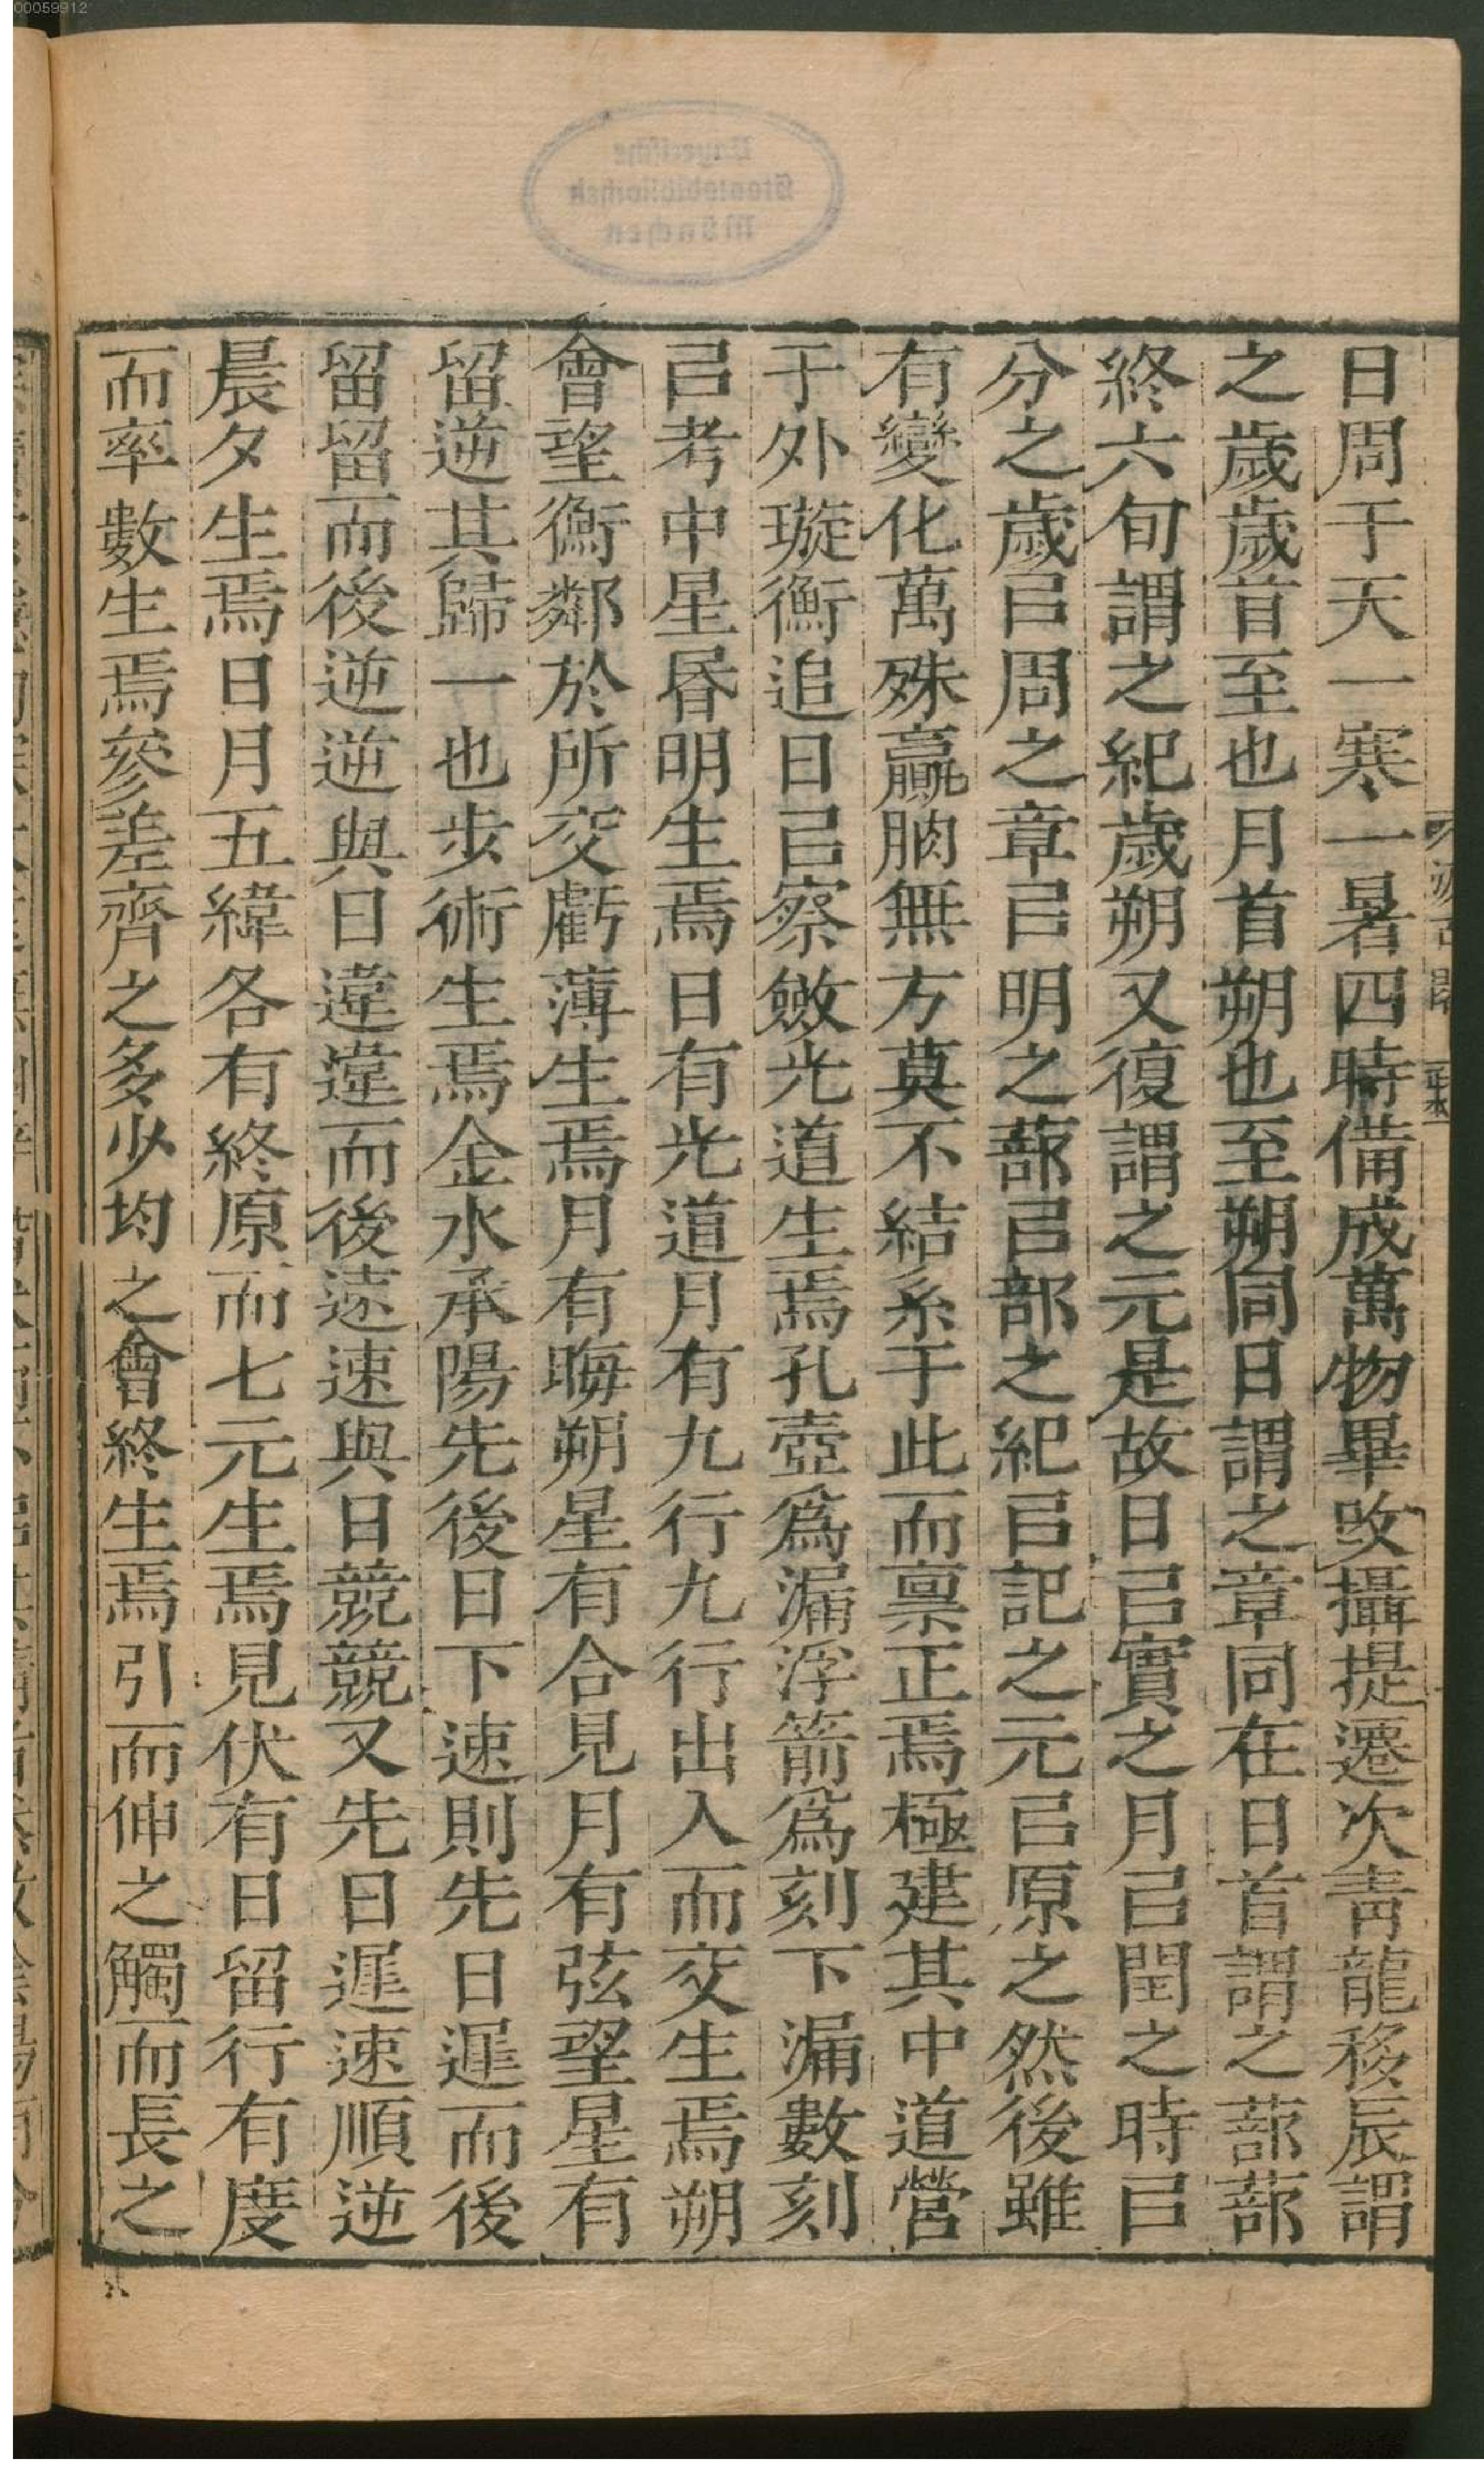 日周于天一寒一暑四時備成萬物畢改攝提遷次青龍移辰謂
之歲歲首至也月首朔也至朔同日謂之章同在日首謂之蔀蔀
終六旬謂之紀歲朔又復謂之元是故日㠯實之月㠯閏之時㠯
分之歲㠯周之章㠯明之蔀㠯部之紀㠯記之元㠯原之然後雖
有變化萬殊贏朒無方莫不結系于此而稟正焉極建其中道營
于外璇衡追日㠯察斂光道生焉孔壺爲漏浮箭爲刻下漏數刻
㠯考中星昬明生焉日有光道月有九行九行出入而交生焉朔
會望衡鄰於所交虧薄生焉月有晦朔星有合見月有弦望星有
留逆其歸一也步術生焉金水承陽先後日下速則先日遲而後
留留而後逆逆與日違違而後速速與日競競又先日遲速順逆
晨夕生焉日月五緯各有終原而七元生焉見伏有日留行有度
而率數生焉參差齊之多少均之會終生焉引而伸之觸而長之
00059912
Bayerische
Staatsbibliothek
München